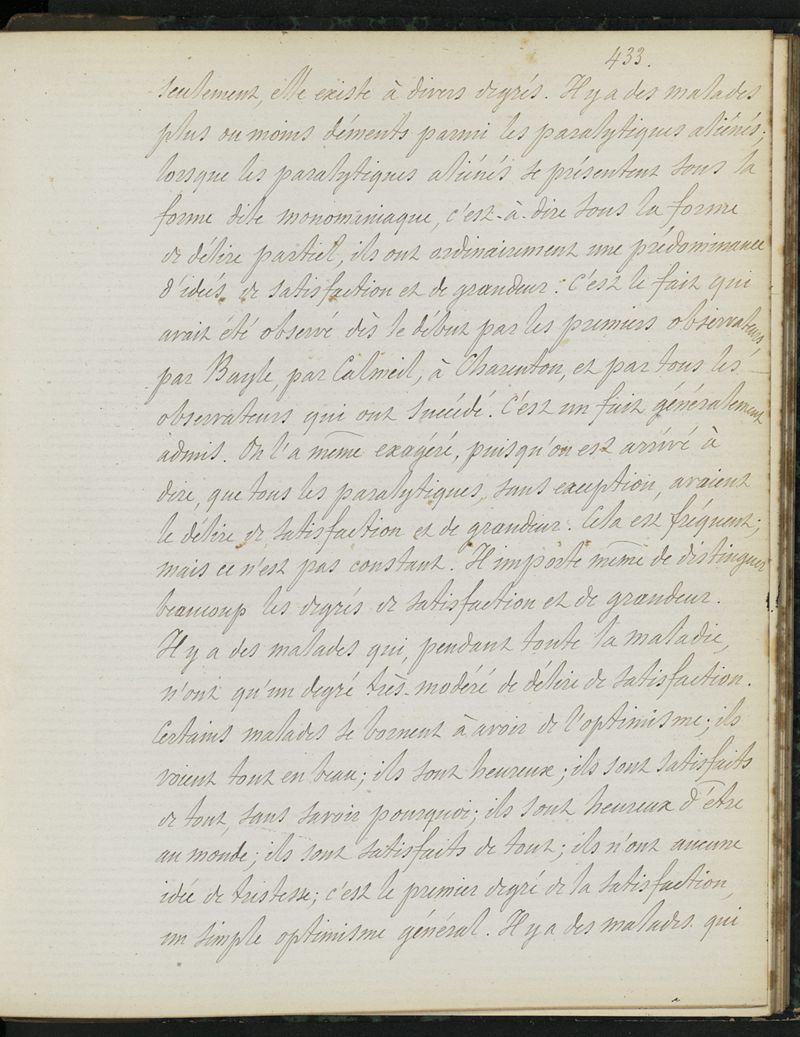 433.
seulement, elle existe à divers degrés. Il y a des malades
plus ou moins déments parmi les paralytiques aliénés;
lorsque les paralytiques aliénés se présentent sous la
forme dite monomaniaque, c'est-à-dire sous la forme
de délire partiel, ils ont ordinairement une prédominance
d'idées de satisfaction et de grandeur: c'est le fait qui
avait été observé dès le début par les premiers observateurs,
par Bayle, par Calmeil, à Charenton, et par tous les
observateurs qui ont succédé. C'est un fait généralement
admis. On l'a même exagéré, puisqu'on est arrivé à
dire, que tous les paralytiques, sans exception, avaient
le délire de satisfaction et de grandeur. Cela est fréquent;
mais ce n'est pas constant. Il importe même de distinguer
beaucoup les degrés de satisfaction et de grandeur.
Il y a des malades qui, pendant toute la maladie,
n'ont qu'un degré très-modéré de délire de satisfaction.
Certains malades se bornent à avoir de l'optimisme; ils
voient tout en beau; ils sont heureux; ils sont satisfaits
de tout, sans savoir pourquoi; ils sont heureux d'être
au monde; ils sont satisfaits de tout; ils n'ont aucune
idée de tristesse; c'est le premier degré de la satisfaction,
un simple optimisme général. Il y a des malades qui